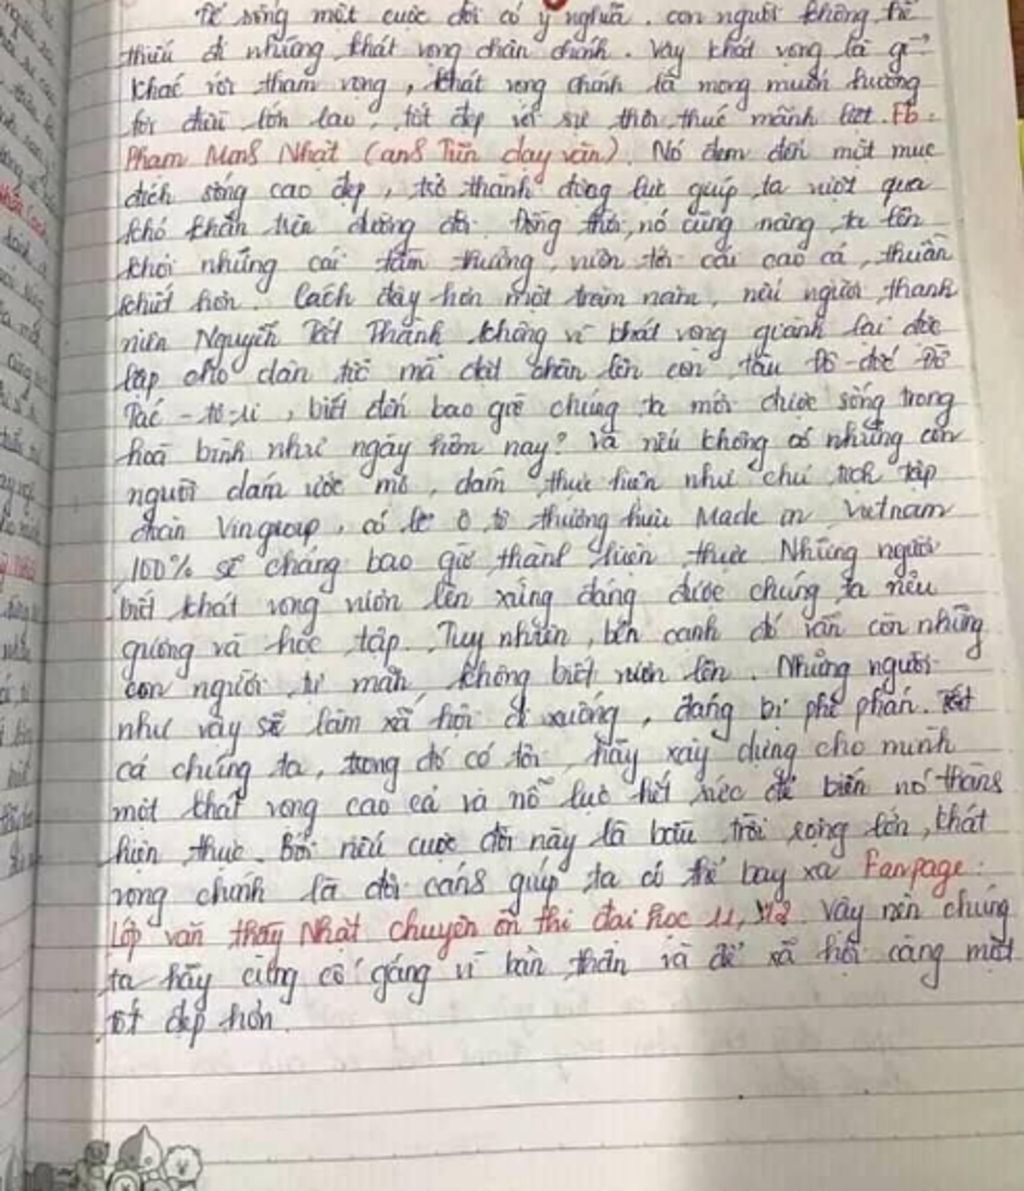 Để sống một cuộc đời có ý nghĩa, con người không thể
thiếu đi những khát vọng chân chính. Vậy khát vọng là gì?
Khác với tham vọng, khát vọng chính là mong muốn hướng
tới điều lớn lao, tốt đẹp với sự thôi thúc mãnh liệt. Fb:
Phạm Minh Nhật (anh Tiên dạy văn). Nó đem đến một mục
đích sống cao đẹp, trở thành động lực giúp ta vượt qua
khó khăn trên đường đời. Đồng thời, nó cũng nâng ta lên
khỏi những cái tầm thường, vươn tới cái cao cả, thuần
khiết hơn. Cách đây hơn một trăm năm, nếu người thanh
niên Nguyễn Tất Thành không vì khát vọng giành lại độc
lập cho dân tộc mà đặt chân lên con tàu Đô-đốc Đờ
Tác-tơ-ri, biết đến bao giờ chúng ta mới được sống trong
hoà bình như ngày hôm nay? Và nếu không có những con
người dám ước mơ, dám thực hiện như chủ tịch tập
đoàn Vingroup, có lẽ ô tô thương hiệu Made in Vietnam
100% sẽ chẳng bao giờ thành hiện thực. Những người
biết khát vọng vươn lên xứng đáng được chúng ta nêu
gương và học tập. Tuy nhiên, bên cạnh đó vẫn còn những
con người tự mãn, không biết vươn lên. Những người
như vậy sẽ làm xã hội đi xuống, đáng bị phê phán. Tất
cả chúng ta, trong đó có tôi, hãy xây dựng cho mình
một khát vọng cao cả và nỗ lực hết sức để biến nó thành
hiện thực. Bởi nếu cuộc đời này là bầu trời rộng lớn, khát
vọng chính là đôi cánh giúp ta có thể bay xa Fanpage:
Lớp văn thầy Nhật chuyên ôn thi đại học 11, 12. Vậy nên chúng
ta hãy cùng cố gắng vì bản thân và để xã hội càng một
tốt đẹp hơn.